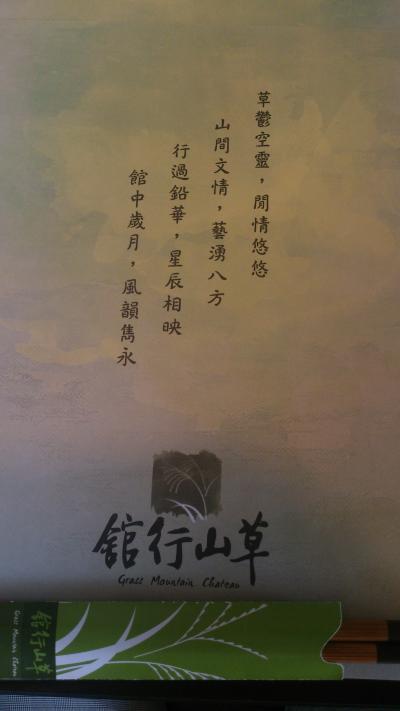 草鬱空靈，閒情悠悠
山間文情，藝湧八方
行過鉛華，星辰相映
館中歲月，風韻雋永
草山行館
Grass Mountain Chateau
草山行館
Grass Mountain Chateau